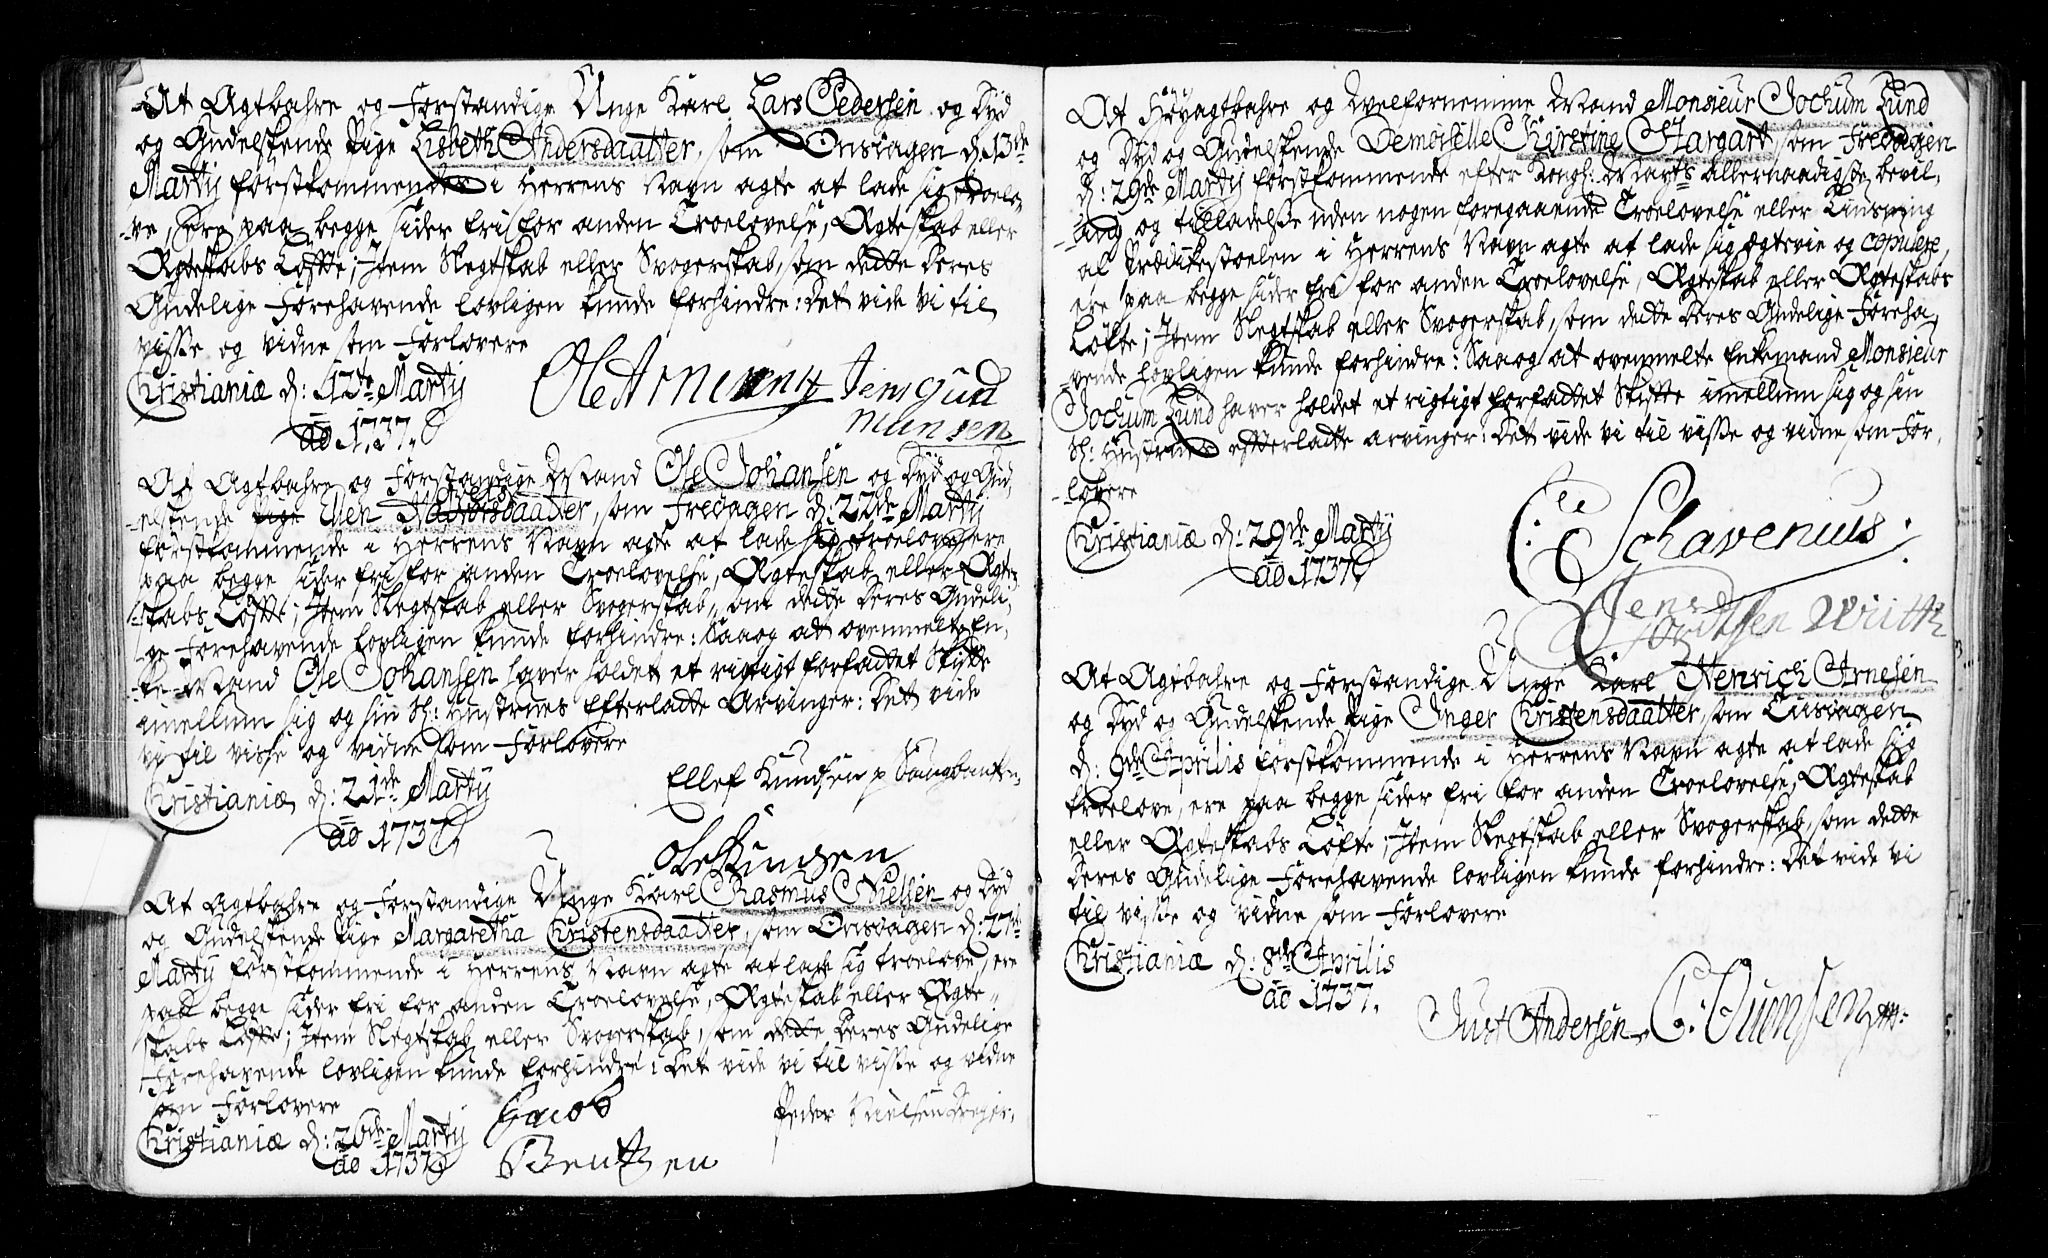 At Agtbahre og Forstandige Unge Karl Lars Pedersen og Dyd
og Gudelskende Pige Lisbeth Andersdaatter, som Onsdagen d: 13de
Martij førstkommende i Herrens Navn agte at lade sig troelo-
-ve, Ere paa begge sider fri for anden Troelovelse, Ægteskab eller
Ægteskabs Løfte; Item Slegtskab eller Svogerskab, som dette deres
Gudelige Forehavende lovligen kunde forhindre: Det vide vi til
visse og vidne som Forlovere
Christianiæ d: 12te Martij
ao 1737.
Ole Jens Gud
munsen
At Agtbahre og Forstandige Mand Ole Johansen og Dyd og Gud,
-elskende Pige Ellen, som Fredagen d: 22de Martij
førstkommende i Herrens Navn agte at lade sig troelove, ere
paa begge sider fri for anden Troelovelse, Ægteskab eller Ægte,
-skabs Løfte; Item Slegtskab eller Svogerskab, som dette deres Gudeli,
-ge Forehavende lovligen kunde forhindre: Saa og at ovenmelte En,
-ke-Mand Ole Johansen haver holdet et rigtigt forfattet Skifte
imellum sig og sin Sl: Hustrues Efterladte Arvinger: Det vide
vi til visse og vidne som Forlovere
Christianiæ d: 21de Martij
ao 1737.
Ellef Knudsen p Sougbanken
Ole
At Agtbahre og Forstandige Unge Karl Rasmus Nielsen og Dyd
og Gudelskende Pige Margaretha Christensdaatter, som Onsdagen d: 27de
Martij førstkommende i Herrens Navn agte at lade sig troelove, ere
paa begge sider fri for anden Troelovelse, Ægteskab eller Ægte-
skabs Løfte; Item Slegtskab eller Svogerskab, som dette deres Gudelige
Forehavende lovligen kunde forhindre: Det vide vi til visse og vidne
som Forlovere
Christianiæ d: 26de Martij
ao 1737.
Jacob
Bentzen
Peder Nielsen
At Høyagtbahre og Velfornemme Mand Monsieur Jochum Lund
og Dyd og Gudelskende Demoiselle Kirstine Stargart, som Fredagen
d: 29de Martij førstkommende efter Kongl: Mayts allernaadigste bevil,
-ling og tilladelse uden nogen foregaaende Troelovelse eller Liusning
af Prædikestoelen i Herrens Navn agte at lade sig ægtevie og copulere,
ere paa begge sider fri for anden Troelovelse, Ægteskab eller Ægteskabs
Løfte; Item Slegtskab eller Svogerskab, som dette deres Gudelige Foreha,
-vende lovligen kunde forhindre: Saa og at ovenmelte Enkemand Monsieur
Jochum Lund haver holdet et rigtigt forfattet Skifte imellum sig og sin
Sl: Hustrues efterladte arvinger: Det vide vi til visse og vidne som For,
-lovere
Christianiæ d: 29de Martij
ao 1737.
C Schavenius
Jens
At Agtbahre og Forstandige Unge Karl Henrich Arnesen
og Dyd og Gudelskende Pige Inger Christensdaatter, som Tiisdagen
d: 9de Aprilis førstkommende i Herrens Navn agte at lade sig
troelove, ere paa begge sider fri for anden Troelovelse, Ægteskab
eller Ægteskabs Løfte; Item Slegtskab eller Svogerskab, som dette
deres Gudelige Forehavende lovligen kunde forhindre: Det vide vi
til visse og vidne som Forlovere
Christianiæ d: 8de Aprilis
ao 1737.
Just Andersen